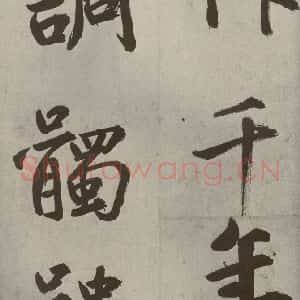 千年
調髑
Shufawang.CN